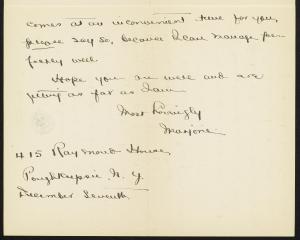 comes at an inconvenient time for you,
please say so, because I can manage per-
fectly well.
Hope you are well and are
getting as far as I am.
Most lovingly
Marjorie.
415 Raymond House,
Poughkeepsie, N. Y.
December Seventh.